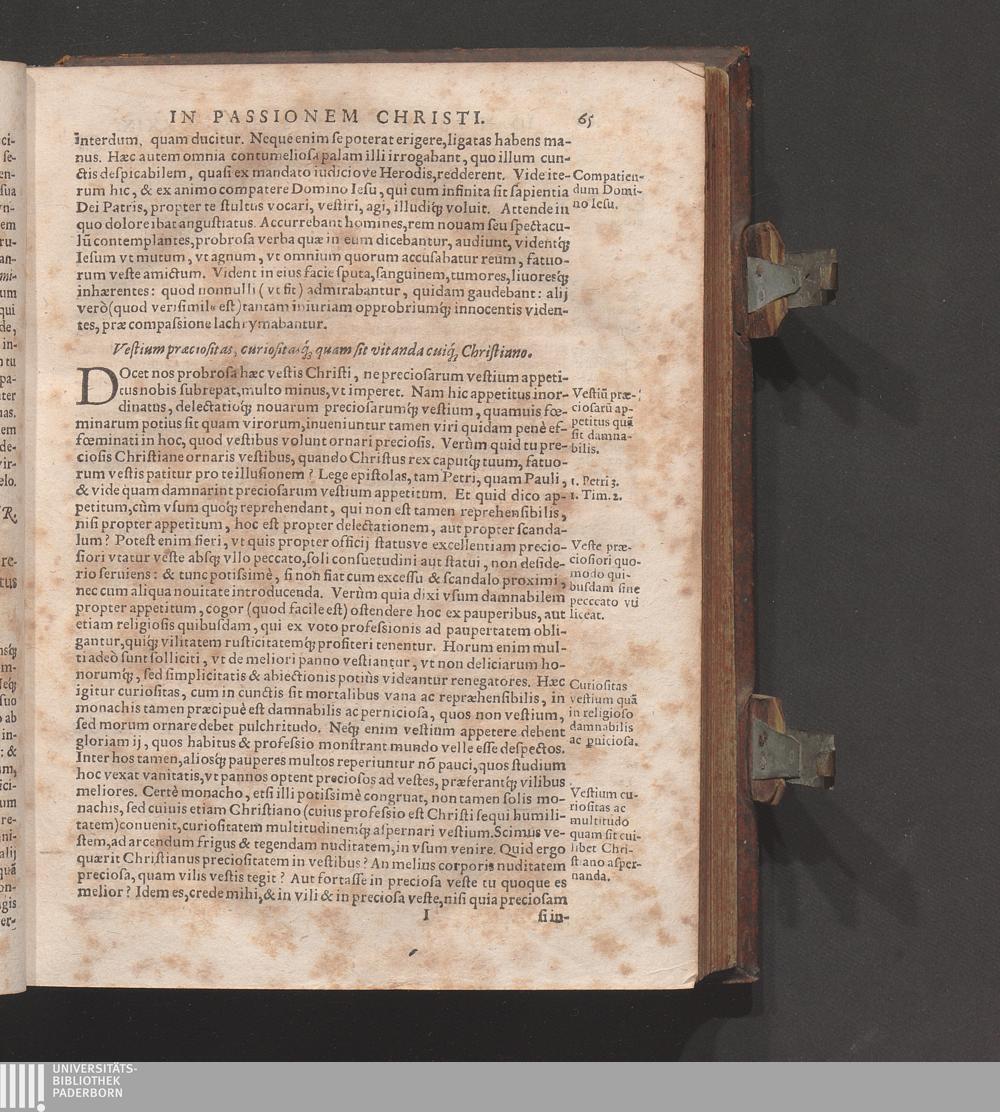 IN PASSIONEM CHRISTI. 65
interdum, quam ducitur. Neque enim se poterat erigere, ligatas habens ma-
nus. Hæc autem omnia contumeliosa palam illi irrogabant, quo illum cun-
ctis despicabilem, quasi ex mandato iudiciove Herodis, redderent. Vide ite-
rum hic, & ex animo compatere Domino Iesu, qui cum infinita sit sapientia
Dei Patris, propter te stultus vocari, vestiri, agi, illudiq́; voluit. Attende in
quo dolore ibat angustiatus. Accurrebant homines, rem nouam seu spectacu-
lũ contemplantes, probrosa verba quæ in eum dicebantur, audiunt, videntq́;
Iesum vt mutum, vt agnum, vt omnium quorum accusabatur reum, fatuo-
rum veste amictum. Vident in eius facie sputa, sanguinem, tumores, liuoresq́;
inhærentes: quod nonnulli (vt fit) admirabantur, quidam gaudebant: alij
verò (quod verisimile est) tantam iniuriam opprobriumq́; innocentis viden-
tes, præ compassione lachrymabantur.
Compatien-
dum Domi-
no Iesu.
Vestium præciositas, curiositasq́; quam sit vitanda cuiq́; Christiano.
DOcet nos probrosa hæc vestis Christi, ne preciosarum vestium appeti-
tus nobis subrepat, multo minus, vt imperet. Nam hic appetitus inor-
dinatus, delectatioq́; nouarum preciosarumq́; vestium, quamuis fœ-
minarum potius sit quam virorum, inueniuntur tamen viri quidam penè ef-
fœminati in hoc, quod vestibus volunt ornari preciosis. Verùm quid tu pre-
ciosis Christiane ornaris vestibus, quando Christus rex caputq́; tuum, fatuo-
rum vestis patitur pro te illusionem? Lege epistolas, tam Petri, quam Pauli,
& vide quam damnarint preciosarum vestium appetitum. Et quid dico ap-
petitum, cùm vsum quoq́; reprehendant, qui non est tamen reprehensibilis,
nisi propter appetitum, hoc est propter delectationem, aut propter scanda-
lum? Potest enim fieri, vt quis propter officij statusve excellentiam precio-
siori vtatur veste absq́; vllo peccato, soli consuetudini aut statui, non deside-
rio seruiens: & tunc potissimè, si non fiat cum excessu & scandalo proximi,
nec cum aliqua nouitate introducenda. Verùm quia dixi vsum damnabilem
propter appetitum, cogor (quod facile est) ostendere hoc ex pauperibus, aut
etiam religiosis quibusdam, qui ex voto professionis ad paupertatem obli-
gantur, quiq́; vilitatem rusticitatemq́; profiteri tenentur. Horum enim mul-
ti adeò sunt solliciti, vt de meliori panno vestiantur, vt non deliciarum ho-
norumq́;, sed simplicitatis & abiectionis potiùs videantur renegatores. Hæc
igitur curiositas, cum in cunctis sit mortalibus vana ac repræhensibilis, in
monachis tamen præcipuè est damnabilis ac perniciosa, quos non vestium,
sed morum ornare debet pulchritudo. Neq́; enim vestium appetere debent
gloriam ij, quos habitus & professio monstrant mundo velle esse despectos.
Inter hos tamen, aliosq́; pauperes multos reperiuntur nõ pauci, quos studium
hoc vexat vanitatis, vt pannos optent preciosos ad vestes, præferantq́; vilibus
meliores. Certè monacho, etsi illi potissimè congruat, non tamen solis mo-
nachis, sed cuiuis etiam Christiano (cuius professio est Christi sequi humili-
tatem) conuenit, curiositatem multitudinemq́; aspernari vestium. Scimus ve-
stem, ad arcendum frigus & tegendam nuditatem, in vsum venire. Quid ergo
quærit Christianus preciositatem in vestibus? An melius corporis nuditatem
preciosa, quam vilis vestis tegit? Aut fortasse in preciosa veste tu quoque es
melior? Idem es, crede mihi, & in vili & in preciosa veste, nisi quia preciosam
Vestiũ præ-
ciosarũ ap-
petitus quã
sit damna-
bilis.
1. Petri 3.
1. Tim. 2.
Veste præ-
ciosiori quo-
modo qui-
busdam sine
pecccato vti
liceat.
Curiositas
vestium quã
in religioso
damnabilis
ac pniciosa.
Vestium cu-
riositas ac
multitudo
quam sit cui-
libet Chri-
stiano asper-
nanda.
I si in-
UNIVERSITÄTS-
BIBLIOTHEK
PADERBORN